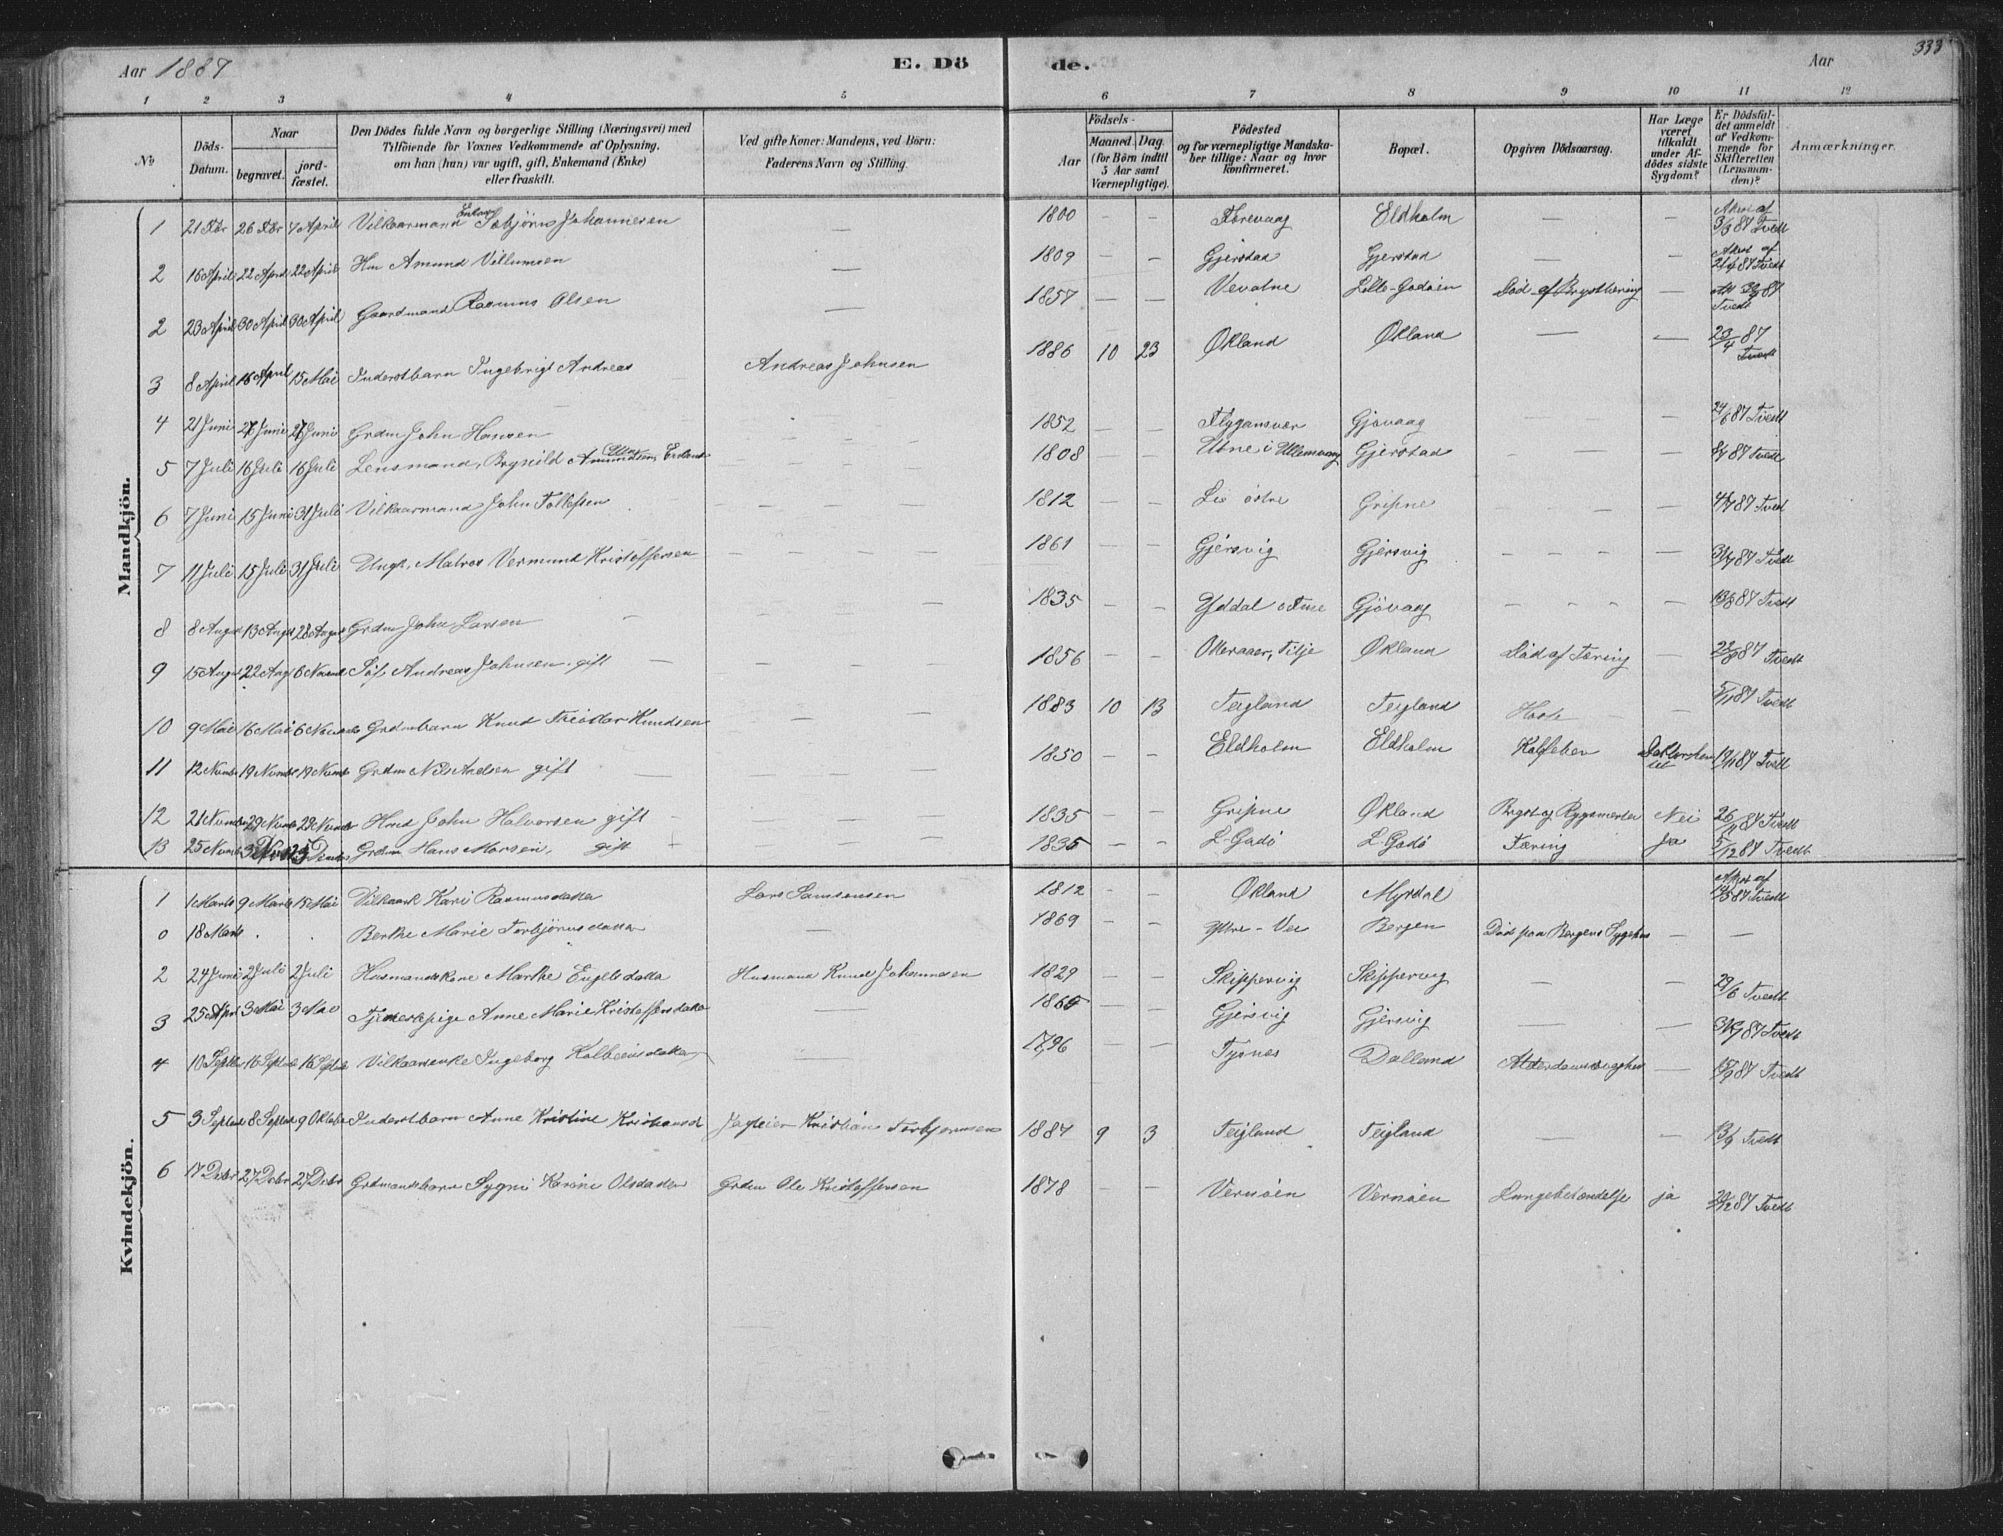 Aar 1887
E. Dö
de.
Aar
333
1 2 3 4 5 6 7 8 9 10 11 12
No
Döds-Datum.
Naar begravet. jordfæstet.
Den Dödes fulde Navn og borgerlige Stilling (Næringsvei) med Tilföiende for Voxnes Vedkommende af Oplysning, om han (hun) var ugift, gift, Enkemand (Enke) eller fraskilt.
Ved gifte Koner: Mandens, ved Börn: Faderens Navn og Stilling.
Födsels-
Aar
Maaned. Dag.
(for Börn indtil 5 Aar samt Værnepligtige).
Födested og for værnepligtige Mandskaber tillige: Naar og hvor konfirmeret.
Bopæl.
Opgiven Dödsaarsag.
Har Læge været tilkaldt under Afdödes sidste Sygdom?
Er Dödsfaldet anmeldt af Vedkommende for Skifteretten (Lensmanden)?
Anmærkninger.
Mandkjön.
1 21 Febr 26 Febr 7 April Vilkaarmand Enkem Torbjörn Johannesen — 1800 — — Eldholm — — 3/3 87 Tvedt
2 16 April 22 April 22 April Hm Amund Villumsen — 1809 — — Gjerstad Gjerstad — — 87 Tvedt
2 23 April 30 April 30 April Gaardmand Rasmus Olsen — 1857 — — Vevatne Lille-Godöen Död af Brysthering — 87 Tvedt
3 8 April 16 April 15 Mai Inderstbarn Ingebrigt Andreas Andreas Johnsen 1886 10 23 Økland Økland — — 23/4 87 Tvedt
4 21 Juni 27 Juni 27 Juni Grdm John Hansen 1852 — — Flygansvær Gjövaag — — 24/6 87 Tvedt
5 7 Juli 16 Juli 16 Juli Lensmand, Brynild Amundsen 1808 — — Utne i Ullensvang Gjerstad — — 87 Tvedt
6 7 Juni 15 Juni 31 Juli Vilkaarmand John Tollefsen 1812 — — Lie östre Gripne — — 87 Tvedt
7 11 Juli 15 Juli 31 Juli Ungk. Matros Vermund Kristoffersen 1861 — — Gjersvig Gjersvig — — 87 Tvedt
8 8 August 13 August 28 August Grdm John Larsen 1835 — — Yddal Gjövaag — — 87 Tvedt
9 15 August 22 Aug 6 Novemb Andreas Johnsen, gift 1856 — — Økland Död af Tæring — 87 Tvedt
10 9 Mai 16 Mai 6 Novemb Grdmbarn Knud Theodor Knudsen 1883 10 13 Teigland Teigland Hoste — 5/11 87 Tvedt
11 12 Novmb 19 Novmb 19 Novmb Grdm Nils gift 1850 — — Eldholm Eldholm Koldfeber 19/11 87 Tvedt
12 21 Novmb 29 Novmb 29 Novmb Hmd John Halvorsen gift — 1835 — — Gripne Økland Bryst og Rygsmerter Nei 26/11 87 Tvedt
13 25 Novmb Grdm Hans Morsen, gift — 1835 — — L-Godö L-Godö Tæring Ja 5/12 87 Tvedt
Kvindekjön.
1 1 Marts 9 Marts 15 Mai Vilkaark Kari Rasmusdatter Lars Samsonsen 1812 — — Økland Myrdal 87 Tvedt
0 18 Marts . . Berthe Marie Torbjörnsdatter 1869 — — Ytre-Vee Bergen Död paa Bergens Sygehus — —
2 24 Juni 2 Juli 2 Juli Husmandskone Marthe Engelsdatter Husmand Knud Johannesen 1829 — — Skippervig Skippervig — — 29/6 Tvedt
3 25 April 3 Mai 3 Mai Tjenestepige Anne Marie Kristoffersdatter — 1865 — — Gjersvig Gjersvig — — 87 Tvedt
4 10 Septbr 16 Septmb 16 Septmb Vilkaarsenke Ingeborg Kolbeinsdatter — 1796 — — Tysnes Dalland Alderdomssvaghed — 87 Tvedt
5 3 Septmb 8 Septmb 9 Oktober Inderstbarn Anne Kristine Kristiansd Kristian Torbjörnsen 1887 9 3 Teigland Teigland — — 13/9 Tvedt
6 17 Debr 27 Debr 27 Debr Grdmandsbarn Karine Olsdatter Grdm Ole Kristoffersen 1878 — — Vernöen Vernöen Lungebetændelse ja 87 Tvedt